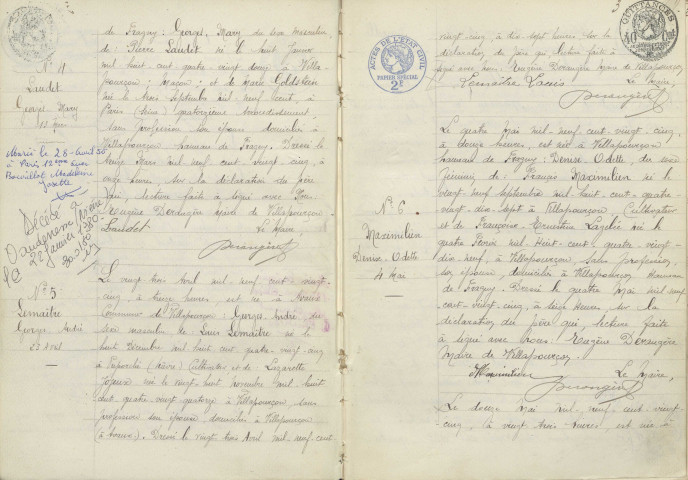 N° 4
Laudet
Georges Mary
11 Mars
Marié le 28 Avril 50
à Paris 12ème avec
Madeleine
Josette
Décédé à
22 Janvier 1980
de Fragny: Georges, Mary du sexe masculin
de: Pierre Laudet né le huit Janvier
mil huit cent quatre vingt douze à Villa-
pourçon, Maçon; et de Marie Goldstein
née le trois Septembre mil neuf cent, à
Paris (Seine) quatorzième arrondissement,
sans profession son épouse domiciliés à
Villapourçon hameau de Fragny. Dressé le
onze Mars mil neuf cent vingt cinq, à
onze heures, sur la déclaration du père
qui, lecture faite à signé avec Nous
Eugène Derangère Maire de Villapourçon
Laudet Le Maire,
Derangère
N° 5
Lemaître
Georges André
23 Avril
Le vingt trois Avril mil neuf cent vingt-
cinq, à heures est né à
Commune de Villapourçon Georges André, du
sexe masculin de Lemaître né le
huit Décembre mil huit cent quatre vingt
à (Nièvre) Cultivateur et de
née le vingt huit novembre mil huit
cent quatre vingt quatorze à Villapourçon sans
profession son épouse domiciliés à Villapourçon
Dressé le vingt trois Avril mil neuf cent
ACTES DE L'ETAT CIVIL
PAPIER SPECIAL
2F
QUITTANCES
vingt cinq, à dix sept heures, sur la
déclaration du père qui lecture faite à
signé avec nous Eugène Derangère Maire de Villapourçon
Lemaître Le Maire,
Derangère
N° 6
Maximilien
Denise Odette
4 Mai
Le quatre Mai mil neuf cent vingt cinq,
à heures, est née à Villapourçon
hameau de Fragny: Denise Odette, du sexe
féminin de: François Maximilien né le
vingt neuf Septembre mil huit cent quatre
vingt dix sept à Villapourçon, Cultivateur
et de Françoise Ernestine née le
quatre Février mil huit cent quatre vingt
dix neuf, à Villapourçon, sans profession,
son épouse, domiciliés à Villapourçon hameau
de Fragny. Dressé le quatre Mai mil neuf
cent vingt cinq, à heures, sur la
déclaration du père qui, lecture faite
à signé avec nous Eugène Derangère
Maire de Villapourçon.
Maximilien Le Maire,
Derangère
Le douze Mai mil neuf cent vingt
cinq, à vingt trois heures, est née à